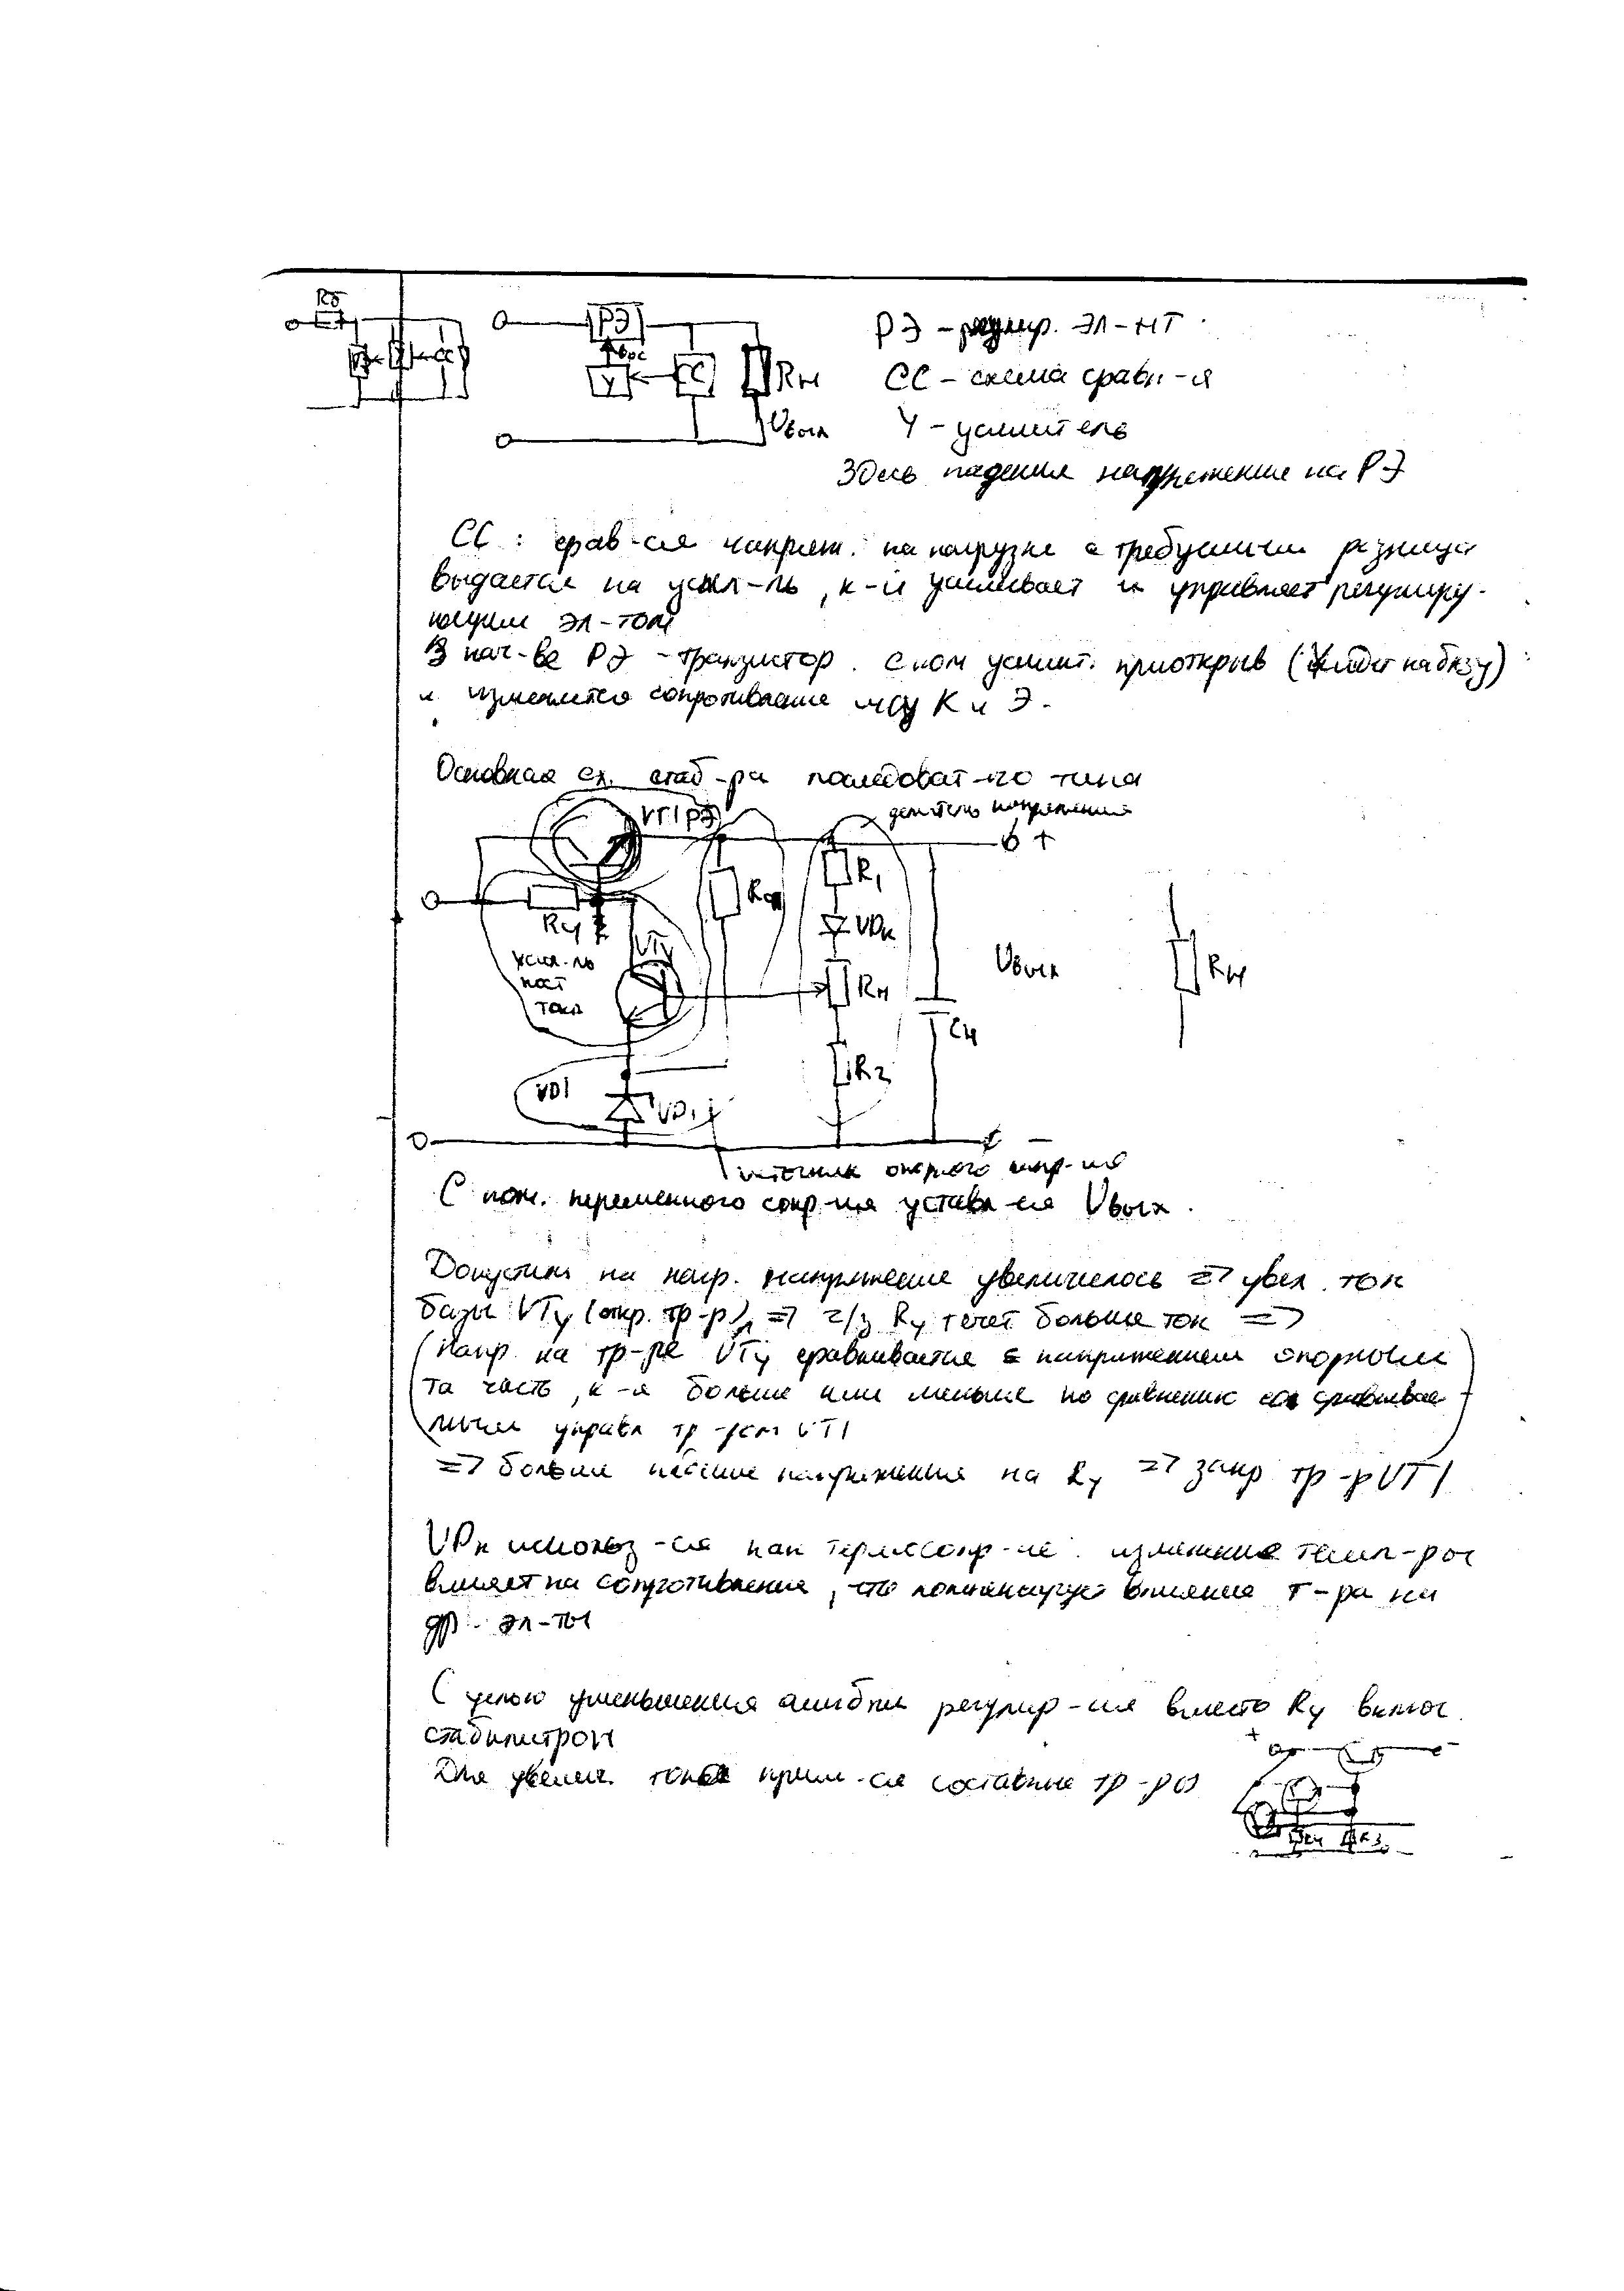 Rδ
РЭ
РЭ - регулир. Эл-нт
У
СС
Rн
СС - схема сравн-я
Uвых
У - усилитель
Здесь падения напряжение на РЭ
СС: срав-ся напряж. на нагрузке с требуемым разница
выдается на усил-ль, к-й усиливает и управляет регулиру-
ющим эл-том
В кач-ве РЭ - транзистор. С пом усилит. приоткрыв ( идет на базу)
и изменяется сопротивление м/у К и Э.
Основная сх. стаб-ра последоват-го типа
делитель напряжения
VT1 РЭ
+
R1
Rу
VDк
VTу
усил-ль
пост
тока
Uвых
Rн
Rп
Cн
R2
VD1
VD1
-
источник опорного напр-ия
С пом. переменного сопр-ия уставл-ся Uвых.
Допустим на нагр. напряжение увеличилось => увел. ток
базы VTу (откр. тр-р) => ч/з Rу течет больше ток =>
(напр. на тр-ре VTу сравнивается с напряжением опорным
та часть, к-я больше или меньше по сравнению со сравнивае
мым управл тр-ром VT1)
=> больше падение напряжения на Rу => закр тр-р VT1
VDк использ-ся как термосопр-ие. изменение темп-ры
влияет на сопротивление, что компенсирует влияние т-ра на
др. эл-ты
С целью уменьшения ошибки регулир-ия вместо Rу включ.
стабилитрон
Для увелич. тока прим-ся составные тр-ры
+
-